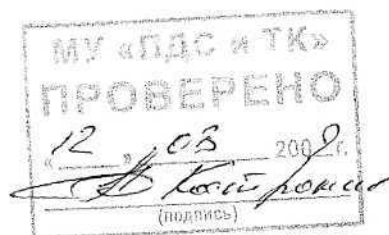 МУ «ПДС и ТК»
ПРОВЕРЕНО
« 12 » 03 200 г.
(подпись)